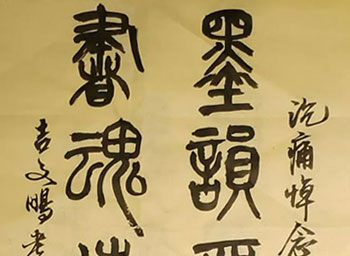 沉痛悼念
墨韻
書魂
吉文鵬老